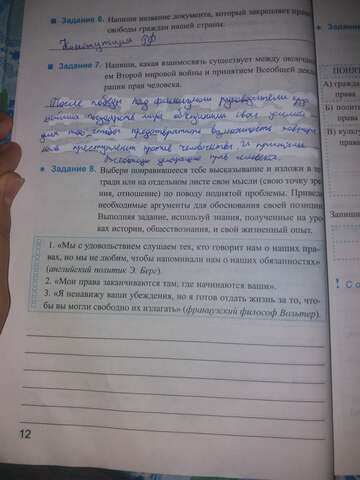 Задание 6. Напиши название документа, который закрепляет права
свободы граждан нашей страны.
Конституция РФ
Задание 7. Напиши, какая взаимосвязь существует между окончани
ем Второй мировой войны и принятием Всеобщей декла
рации прав человека.
После победы над фашизмом руководители
государств мира объединили свои усилия
для того чтобы предотвратить возможность повтора
преступлений против человечества и приняли
Всеобщую декларацию прав человека.
Задание 8. Выбери понравившееся тебе высказывание и изложи в те
тради или на отдельном листе свои мысли (свою точку зре
ния, отношение) по поводу поднятой проблемы. Приведи
необходимые аргументы для обоснования своей позиции
Выполняя задание, используй знания, полученные на уро
ках истории, обществознания, и свой жизненный опыт.
1. «Мы с удовольствием слушаем тех, кто говорит нам о наших пра-
вах, но мы не любим, чтобы напоминали нам о наших обязанностях»
(английский политик Э. Берг).
2. «Мои права заканчиваются там, где начинаются ваши».
3. «Я ненавижу ваши убеждения, но я готов отдать жизнь за то, что-
бы вы могли свободно их излагать» (французский философ Вольтер).
12
ПОНЯТ
А) гражда
права
Б) полит
права
В) культ
права
Запиши